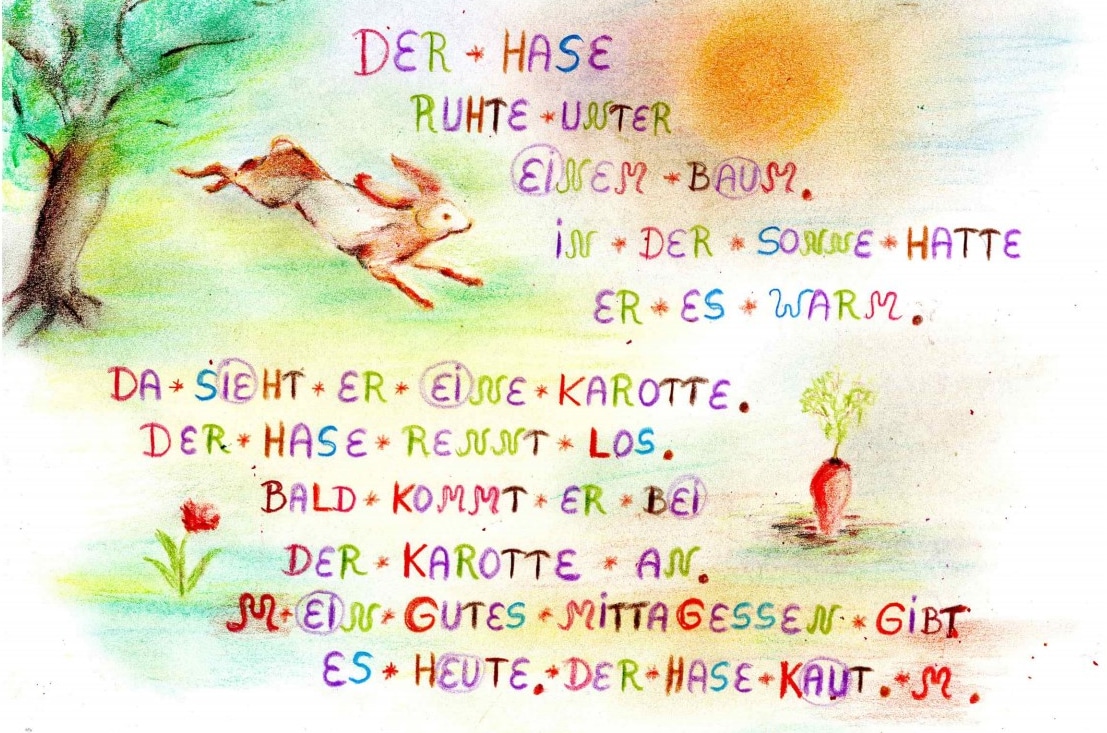 DER * HASE
RUHTE * UNTER
EiNEM * BAUM.
iN * DER * SONNE * HATTE
ER * ES * WARM.
DA * SiEHT * ER * EiNE * KAROTTE.
DER * HASE * RENNT * LOS.
BALD * KOMMT * ER * BEi
DER * KAROTTE * AN.
M * EiN * GUTES * MiTTAGESSEN * GiBT
ES * HEUTE. * DER * HASE * KAUT. * M.